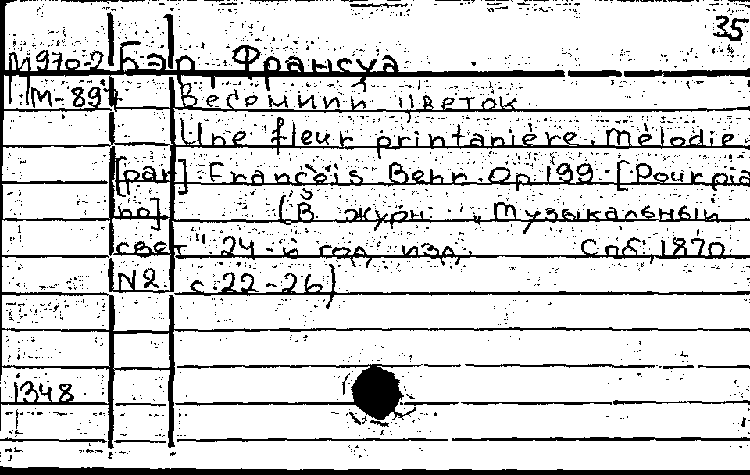 35
М970-2 Бэр Франсуа
М-89 Весенний цветок
Une fleur printanière. Mélodie.
[par] François Behr. Op 199. [Pour pia
no] (В журн. "Музыкальный
свет" 24-й год изд. Спб., 1870
N2 с. 22-26)
1348